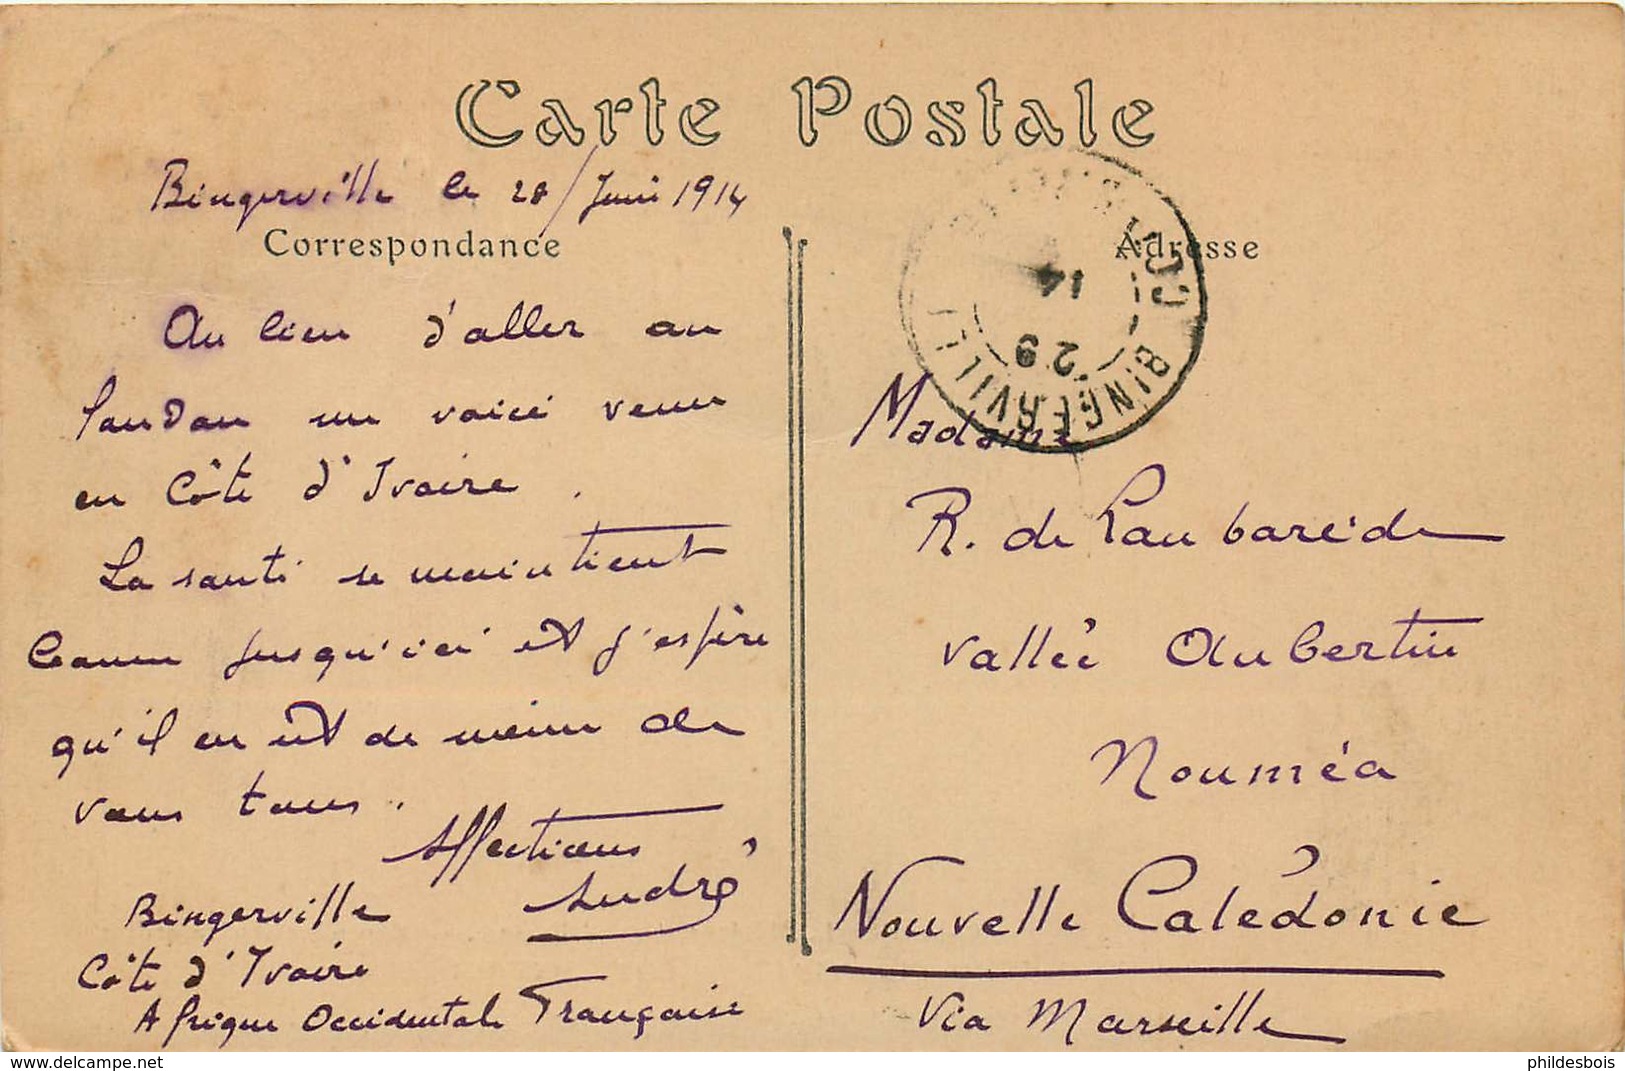 Carte Postale
Bingerville le 28/Juin 1914
Correspondance
Au lieu d'aller au
Soudan me voici venu
en Côte d'Ivoire.
La santé se maintient
bonne jusqu'ici et j'espère
qu'il en est de même de
vous tous.
Affections
André
Bingerville
Côte d'Ivoire
Afrique Occidentale Française
Adresse
BINGERVILLE
29
14
Madame
R. de Laubarède
Vallée Aubertin
Nouméa
Nouvelle Calédonie
Via Marseille
delcampe.net
phildesbois